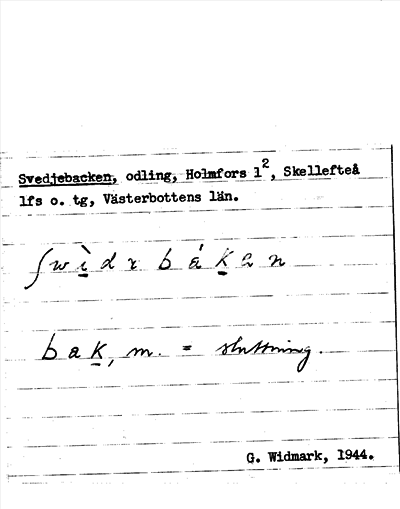 Svedjebacken, odling, Holmfors 1², Skellefteå
lfs o. tg, Västerbottens län.
bak, m. = sluttning.
G. Widmark, 1944.